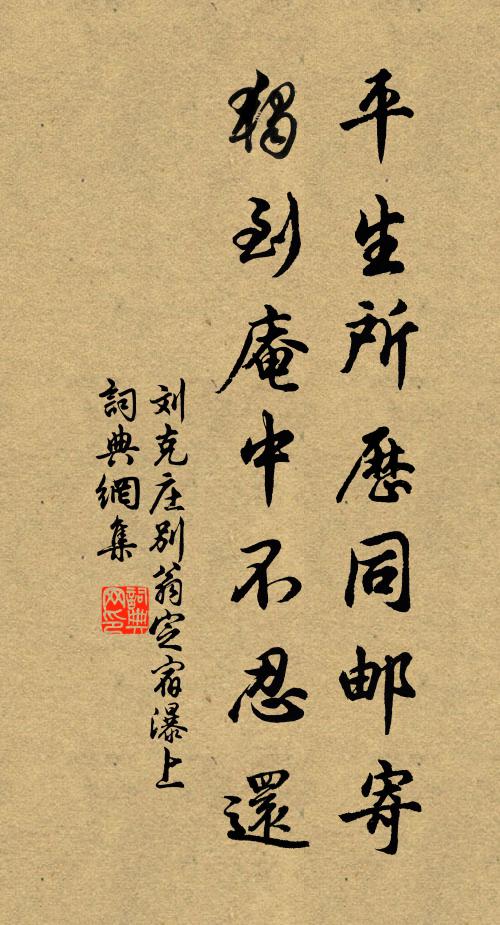 平生所歷同邮寄
獨到庵中不忍還
刘克庄別翁定宿瀑上
詞典網集
詞典
网印